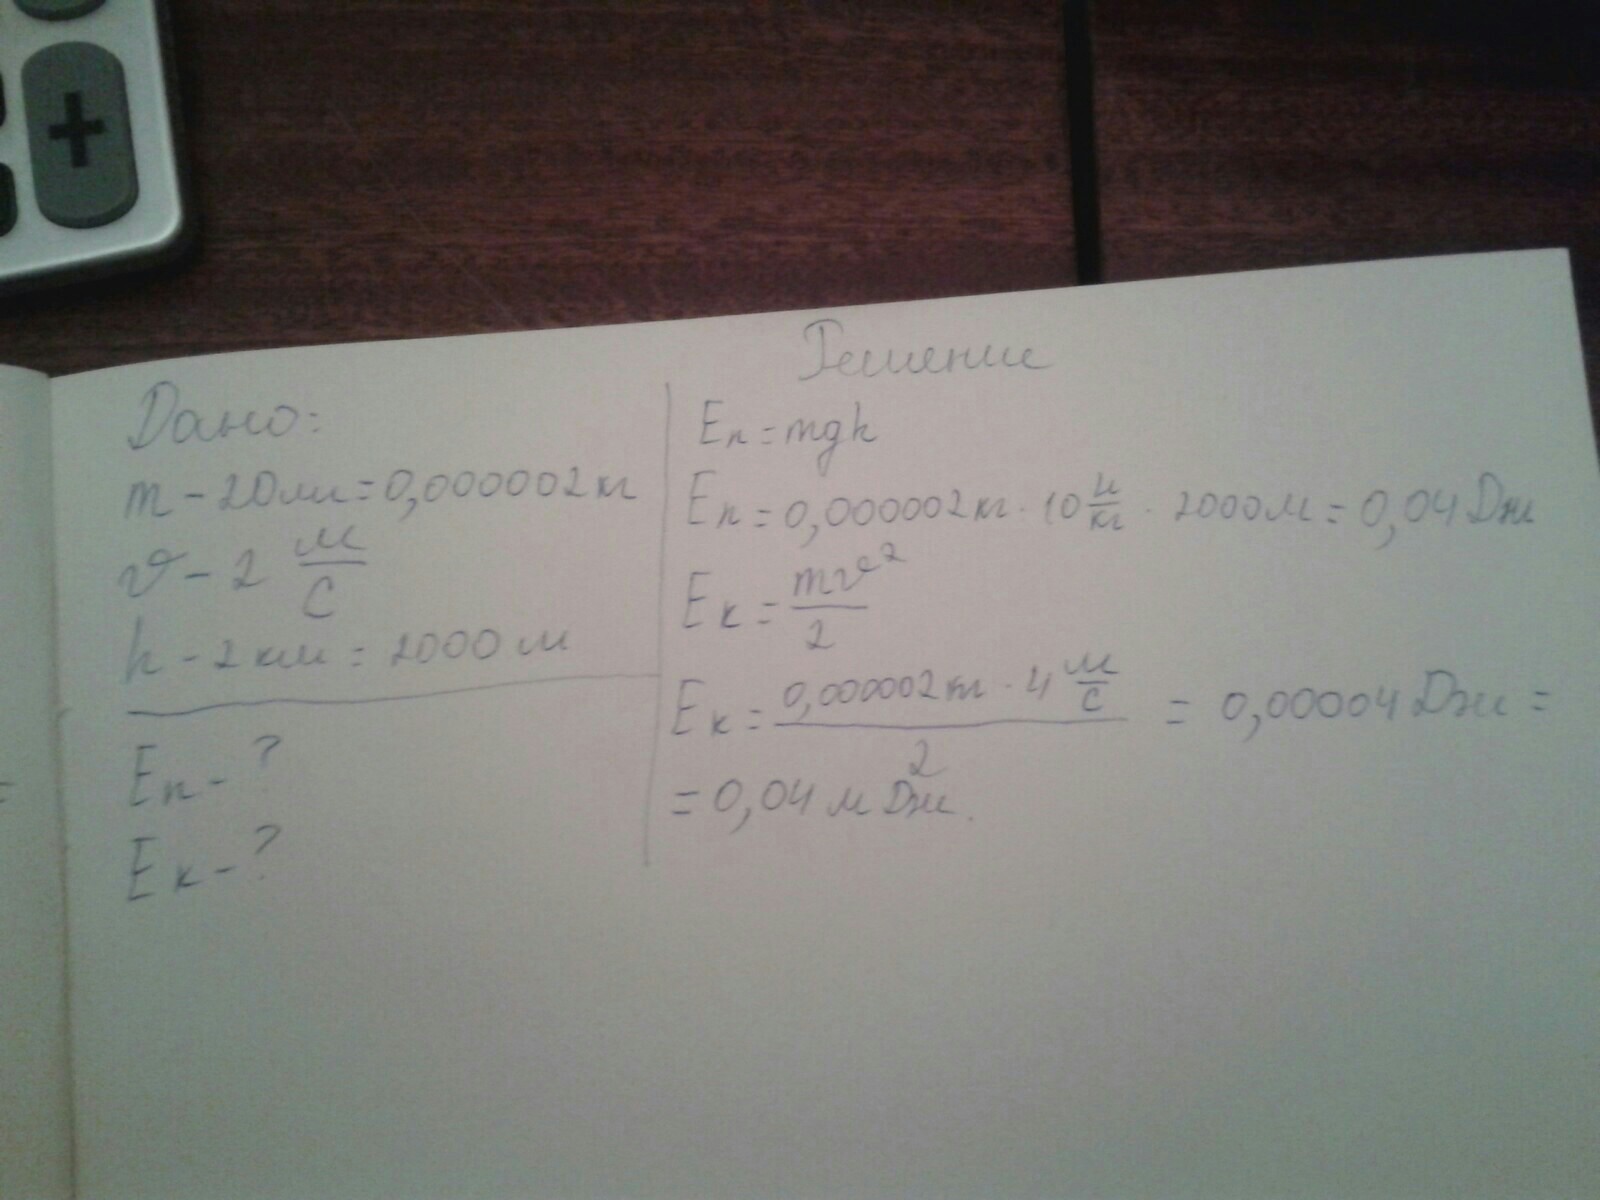 +
Решение
Дано:
m - 20 мг = 0,000002 кг
v - 2 м/с
h - 2 км = 2000 м
Eп - ?
Eк - ?
Eп = mgh
Eп = 0,000002 кг · 10 н/кг · 2000 м = 0,04 Дж
Eк = mv²/2
Eк = 0,000002 кг · 4 м/с / 2 = 0,00004 Дж =
= 0,04 м Дж.